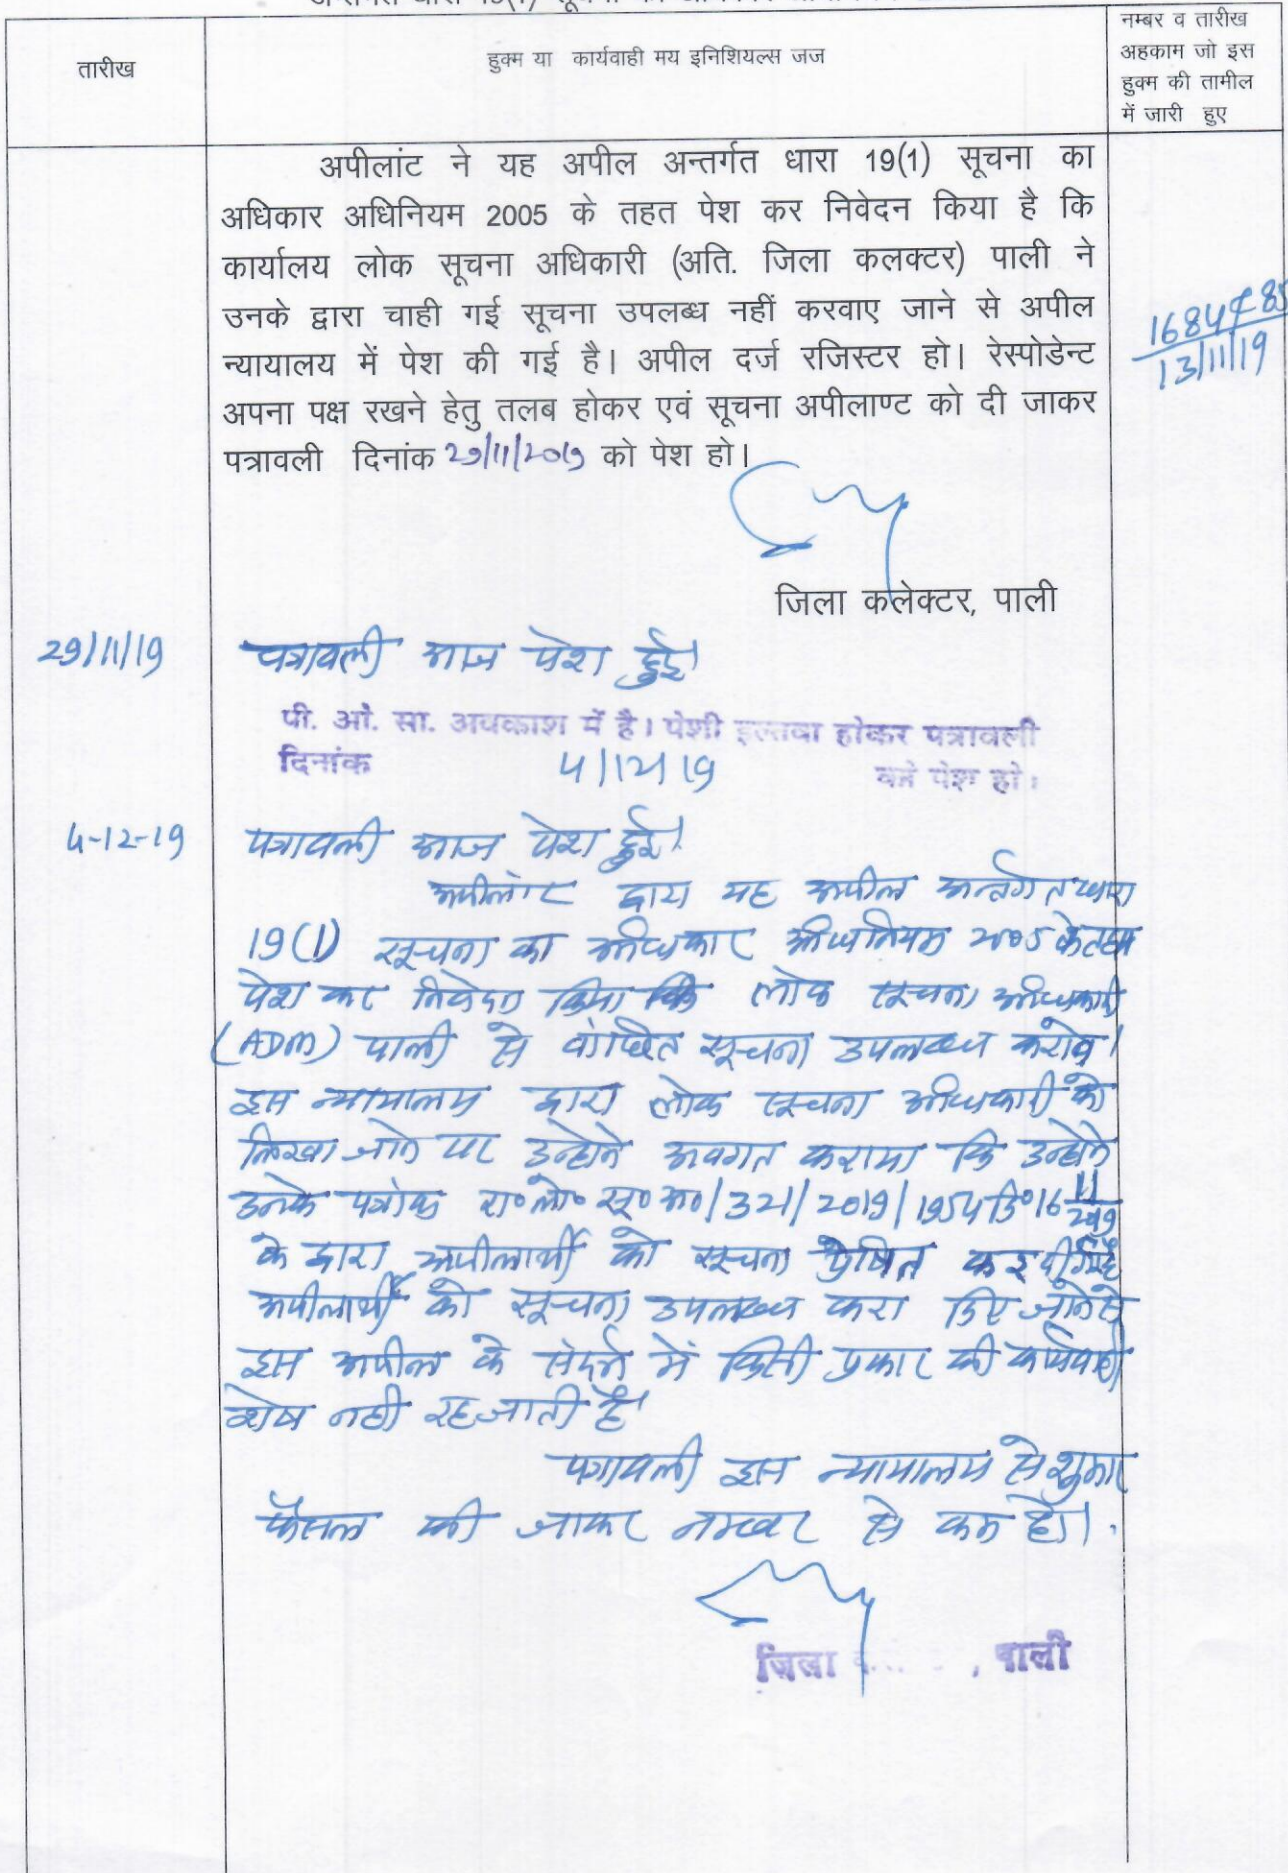 तारीख
हुक्म या कार्यवाही मय इनिशियल्स जज
नम्बर व तारीख
अहकाम जो इस
हुक्म की तामील
में जारी हुए
अपीलांट ने यह अपील अन्तर्गत धारा 19(1) सूचना का
अधिकार अधिनियम 2005 के तहत पेश कर निवेदन किया है कि
कार्यालय लोक सूचना अधिकारी (अति. जिला कलक्टर) पाली ने
उनके द्वारा चाही गई सूचना उपलब्ध नहीं करवाए जाने से अपील
न्यायालय में पेश की गई है। अपील दर्ज रजिस्टर हो। रेस्पोडेन्ट
अपना पक्ष रखने हेतु तलब होकर एवं सूचना अपीलाण्ट को दी जाकर
पत्रावली दिनांक 29/11/2019 को पेश हो।
1684
13/11/19
जिला कलेक्टर, पाली
29/11/19
पत्रावली आज पेश हुई।
पी. ओ. सा. अवकाश में है। पेशी इल्तवा होकर पत्रावली
दिनांक 4/12/19 को पेश हो।
4-12-19
पत्रावली आज पेश हुई।
अपीलांट द्वारा यह अपील अन्तर्गत धारा
19(1) सूचना का अधिकार अधिनियम 2005 के तहत
पेश कर निवेदन किया कि लोक सूचना अधिकारी
(ADM) पाली से वांछित सूचना उपलब्ध करावे।
इस न्यायालय द्वारा लोक सूचना अधिकारी को
लिखा जाने पर उन्होंने अवगत कराया कि उन्होंने
उनके पत्रांक रा०लो०सू०अ०/321/2019/1954 दि० 16/11/2019
के द्वारा अपीलार्थी को सूचना प्रेषित कर दी गई है
अपीलार्थी को सूचना उपलब्ध करा दिए जाने से
इस अपील के संदर्भ में किसी प्रकार की कार्यवाही
शेष नही रह जाती है।
पत्रावली इस न्यायालय से शुमार
फैसल की जाकर नम्बर से कम हो।
जिला , पाली